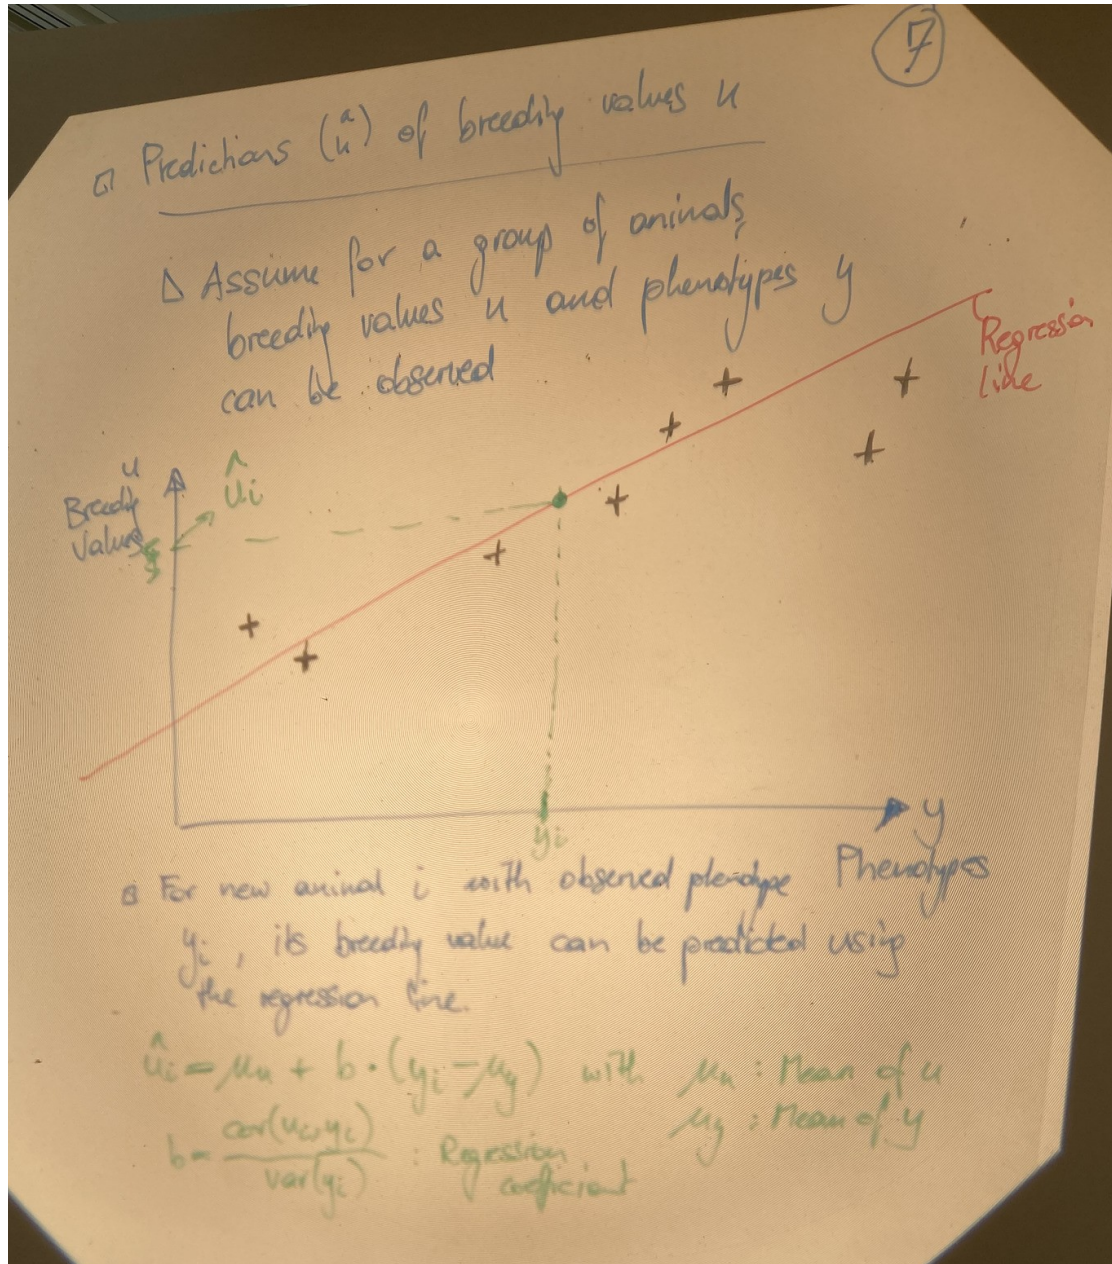 7
Predictions (û) of breeding values u
Assume for a group of animals,
breeding values u and phenotypes y
can be observed
Regression
line
u
Breeding
Values
ûi
yi
y
Phenotypes
For new animal i with observed phenotype
yi, its breeding value can be predicted using
the regression line.
ûi = μu + b·(yi - μy) with μu : Mean of u
μy : Mean of y
b = cov(ui, yi) / var(yi) : Regression
coefficient